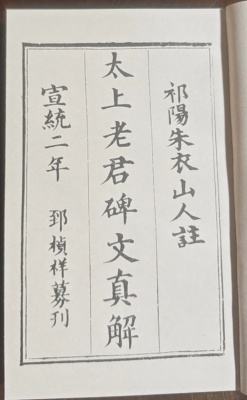 祁陽朱衣山人註
太上老君碑文真解
宣統二年 郅楨祥募刊